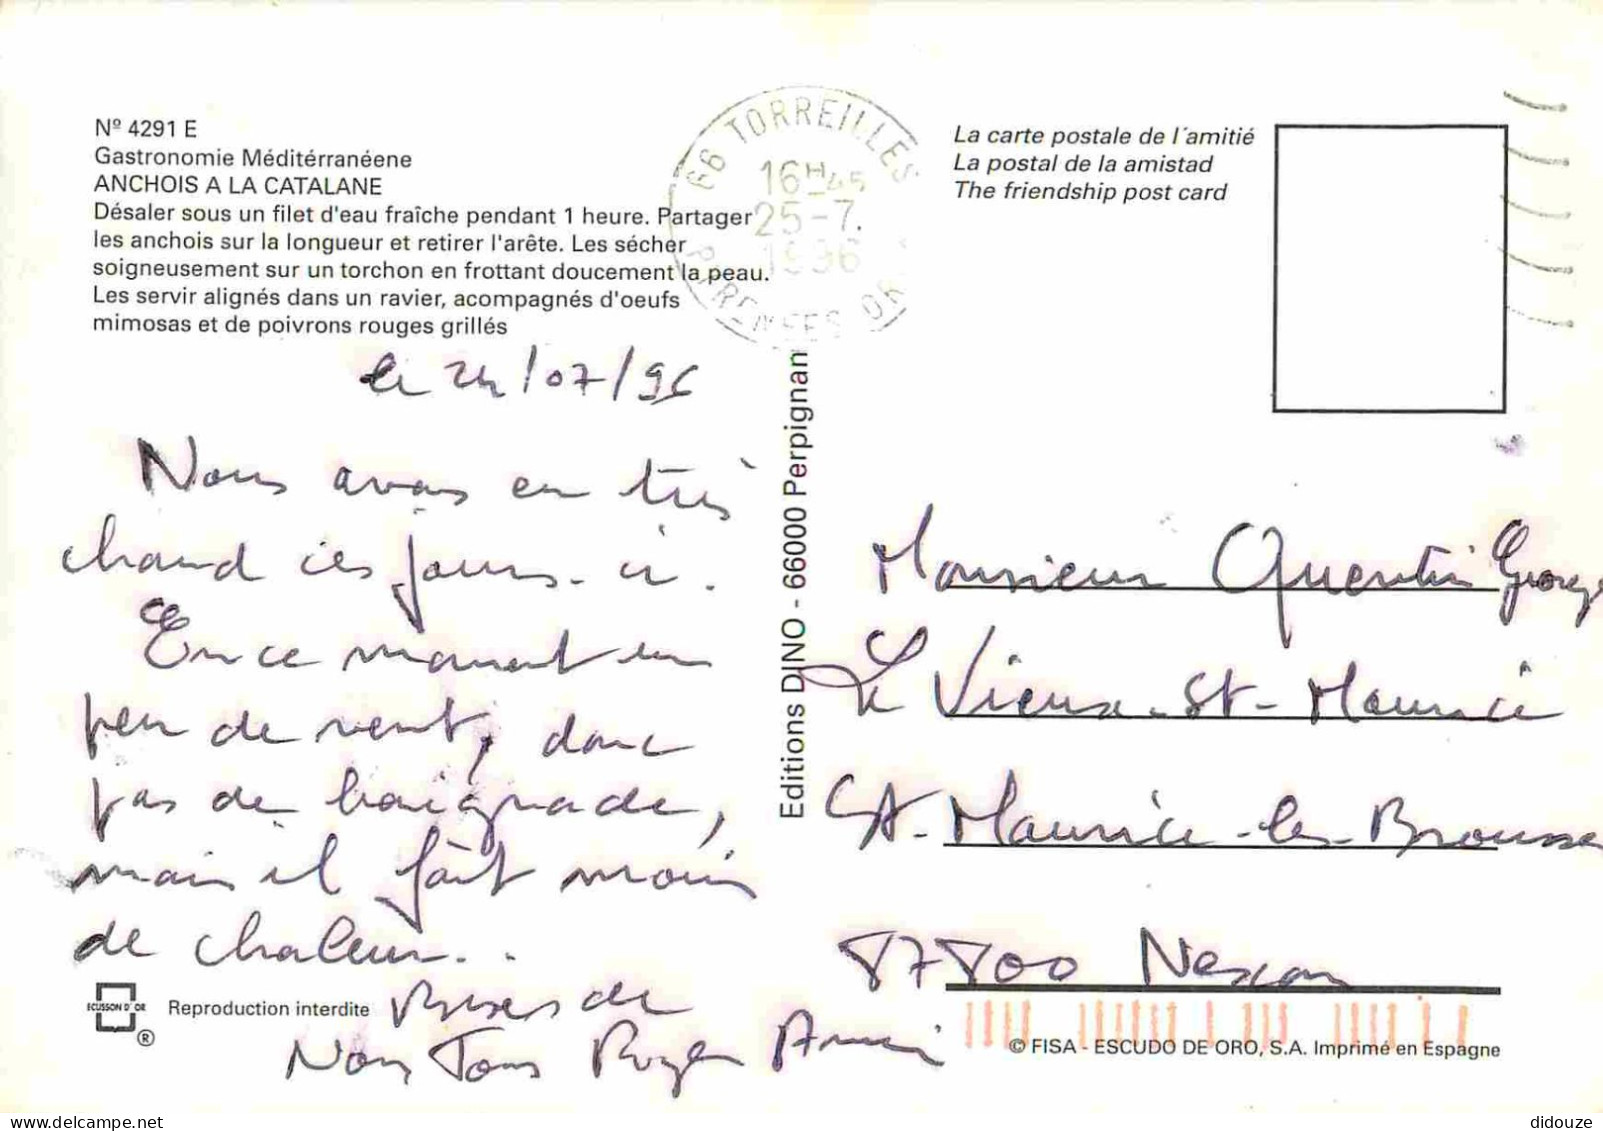 Nº 4291 E
Gastronomie Méditérranéene
ANCHOIS A LA CATALANE
Désaler sous un filet d'eau fraîche pendant 1 heure. Partager
les anchois sur la longueur et retirer l'arête. Les sécher
soigneusement sur un torchon en frottant doucement la peau.
Les servir alignés dans un ravier, acompagnés d'oeufs
mimosas et de poivrons rouges grillés
66 TORREILLES
16H45
25-7.
1996
PYRENEES OR
La carte postale de l´amitié
La postal de la amistad
The friendship post card
le 24/07/96
Nous avons eu très
chaud ces jours-ci.
En ce moment un
peu de vent, donc
pas de baignade,
mais il fait moins
de chaleur..
Bises de
Nous Tous Roger
Editions DINO - 66000 Perpignan
Monsieur Quentin Georges
Le Vieux-St-Maurice
St-Maurice-les-Brousse
87800 Nexon
ECUSSON D'OR
®
Reproduction interdite
© FISA - ESCUDO DE ORO, S.A. Imprimé en Espagne
didouze